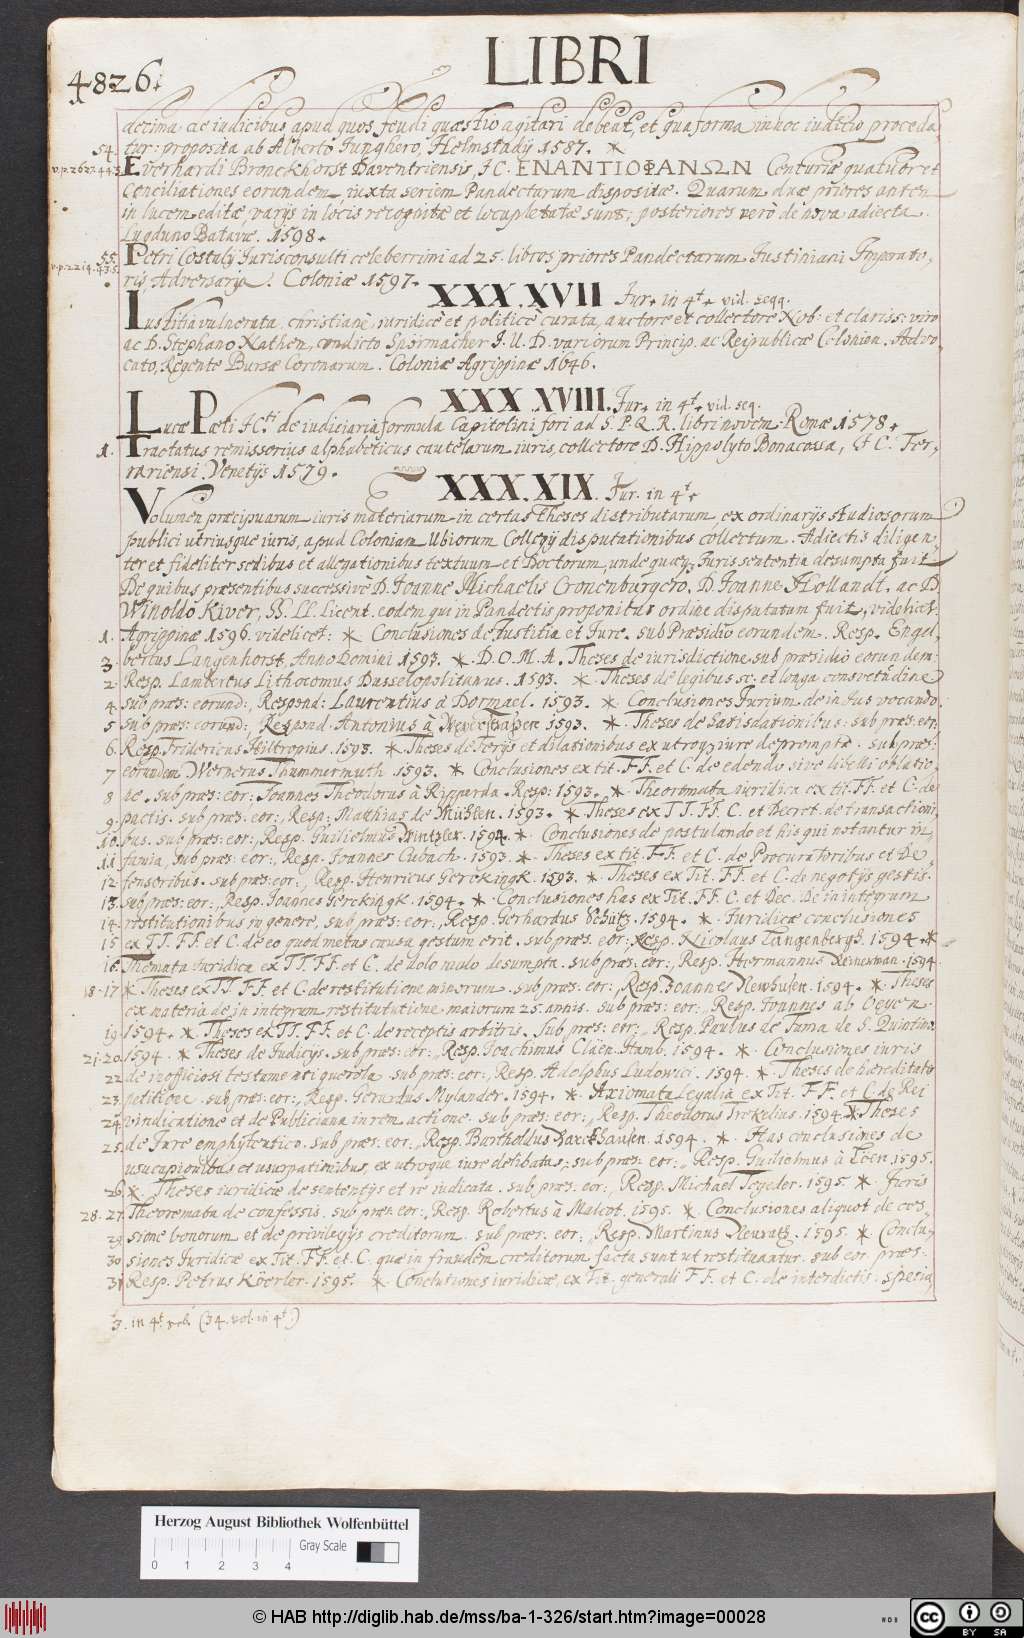 LIBRI
4826.
decima. ac iudicibus apud quos feudi quæstio agitari debeat, et qua forma in hoc iudicio proceda
54. tur: proposita ab Alberto Junghero, Helmstadij 1587. *
v.p.2627.443 Everhardi Bronckhorst Daventriensis, JC. ENANTIOΦANΩN Centuriæ quatuor et
Conciliationes eorundem iuxta seriem Pandectarum dispositæ. Quarum duæ priores anteu
in lucem editæ, varijs in locis recognitæ et locupletatæ sunt, posteriores verò de novo adiecta.
Lugduno Batavæ. 1598.
55. Petri Costalij Jurisconsulti celeberrimi ad 25. libros priores Pandectarum Justiniani Imperato,
v.p.2214.435. ris, Adversaria. Coloniæ 1597.
XXX.XVII Jur. in 4t. vid. seqq.
Iustitia vulnerata, christianè, iuridicè et politicè curata, auctore et collectore Nob: et clariss: viro
ac D. Stephano Nathen, condicto Spormacher J. U. D. variorum Princip. ac Reipublicæ Colonien. Advo,
cato, Regente Bursæ Coronarum. Coloniæ Agrippinæ 1646.
XXX.XVIII. Jur. in 4t. vid. seq.
Lucæ Pæti JCti de iudiciaria formula Capitolini fori ad S. P. Q. R. libri novem. Romæ 1578.
1. Tractatus remissorius alphabeticus cautelarum iuris, collectore D. Hippolyto Bonacossa, J C. Fer,
rariensi. Venetijs 1579.
XXX.XIX. Jur. in 4t.
Volumen præcipuarum iuris materiarum in certas Theses distributarum, ex ordinarijs studiosorum
publici utriusque iuris, apud Coloniam Ubiorum Collegij disputationibus collectum. Adiectis diligen,
ter et fideliter sedibus et allegationibus textuum et Doctorum, unde quæq; Juris sententia desumpta fuit
De quibus præsentibus successivè D. Joanne Michaelis Cronenburgero, D. Joanne Hollandt, ac D
Winoldo Kiver, SS. LL. Licent. eodem qui in Pandectis proponitur ordine disputatum fuit, videlicet.
1. Agrippinæ 1596. videlicet: * Conclusiones de Justitia et Jure. sub Præsidio eorundem. Resp. Engel,
3. bertus Langenhorst, Anno Domini 1593. * D. O. M. A. Theses de iurisdictione sub præsidio eorundem:
2. Resp. Lambertus Lithocomus Dusselopolitanus. 1593. * Theses de legibus sc. et longa consvetudine
4. sub præs: eorund:, Respond: Laurentius à Dormael. 1593. * Conclusiones Jurium de in Jus vocando
5 sub præs: eorund:, Respond. Antonius à 1593. * Theses de Satisdationibus. sub præs: eor:
6. Resp. Fridericus Hiltropius. 1593. * Theses de Ferijs et dilationibus ex utroq; iure depromptæ. sub præs:
7 eorundem Wernerus Thummermuth. 1593. * Conclusiones ex tit. FF. et C. de edendo sive libelli oblatio,
8 ne. sub præs: eor: Joannes Theodorus à Ripparda. Resp: 1593. * Theoremata iuridica ex tit. FF. et C. de
9. pactis. sub præs: eor:, Resp: Mathias de Mühlen. 1593. * Theses ex TT. FF. C. et Decret. de transactioni
10. bus. sub præs: eor:, Resp. Guilielmus Drintzler. 1594. * Conclusiones de postulando et his qui notantur in
11 famia, sub præs: eor:, Resp. Joannes Cubach. 1593. * Theses ex tit. FF. et C. de Procuratoribus et De,
12 fensoribus. sub præs: eor:, Resp. Henricus Gerckingk. 1593. * Theses ex Tit. FF. et C. de negotijs gestis.
13. sub præs: eor:, Resp. Joannes Gerckingk. 1594. * Conclusiones has ex Tit. FF. C. et Dec. De in integrum
14. restitutionibus in genere, sub præs: eor:, Resp. Gerhardus Schütz. 1594. * Juridicæ conclusiones
15 ex TT. FF. et C. de eo quod metus causa gestum erit. sub præs. eor: Resp. Nicolaus Tangenbergh. 1594. *
16. Themata Juridica ex TT. FF. et C. de dolo malo desumpta. sub præs: eor:, Resp. Hermannus 1594.
18. 17 * Theses ex TT FF. et C. de restitutione minorum. sub præs: eor:, Resp. Joannes Newhusen. 1594. * Theses
ex materia de in integrum restitutione maiorum 25. annis. sub præs: eor:, Resp. Joannes ab Oeyen
19 1594. * Theses ex TT. FF. et C. de receptis arbitris. Sub præs: eor:, Resp. Paulus de Fama de S. Quintino
21. 20. 1594. * Theses de Judicijs. sub præs: eor:, Resp. Joachimus Cläen. Hamb. 1594. * Conclusiones iuris
22 de inofficiosi testamenti querela. sub præs: eor:, Resp. Adolphus Ludowici. 1594. * Theses de hæreditatis
23. petitione. sub præs: eor:, Resp. Gerardus Mylander. 1594. * Axiomata Legalia ex Tit. FF. et C. de Rei
24. vindicatione et de Publiciana in rem actione. sub præs: eor:, Resp. Theodorus Trekelius. 1594. * Theses
25. de Jure emphyteutico. sub præs: eor:, Resp. Bartholdus Haxthausen. 1594. * Has conclusiones de
usucapionibus et usurpationibus, ex utroque iure delibatas, sub præs: eor:, Resp. Guilielmus à Loen. 1595.
26. * Theses iuridicæ de sententijs et re iudicata. sub præs: eor:, Resp. Michael Tegeder. 1595. * Juris
28. 27. Theoremata de confessis. sub præs: eor:, Resp. Robertus à Malcot. 1595. * Conclusiones aliquot de ces,
29 sione bonorum et de privilegijs creditorum. sub præs: eor:, Resp. Martinus Neuratz. 1595. * Conclu,
30 siones Juridicæ ex Tit. FF. et C. quæ in fraudem creditorum facta sunt ut restituantur. sub eor. præs:
31 Resp. Petrus Köerler. 1595. * Conclusiones iuridicæ, ex Tit. generali FF. et C. de interdictis. specia
3. in 4t. vol. (34. vol. in 4t.)
Herzog August Bibliothek Wolfenbüttel
Gray Scale
0 1 2 3 4
© HAB http://diglib.hab.de/mss/ba-1-326/start.htm?image=00028
WDB
cc BY SA